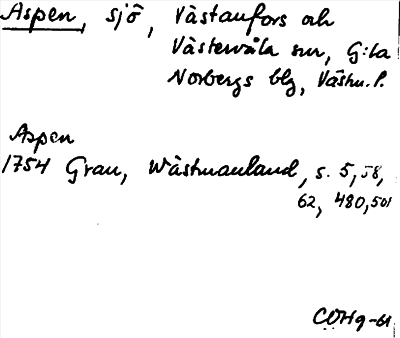 Aspen, sjö, Västanfors och
Västervåla snr, G:la
Norbergs blg, Västm. l.
Aspen
1754 Grau, Wästmanland, s. 5, 58,
62, 480, 501
COHg-61